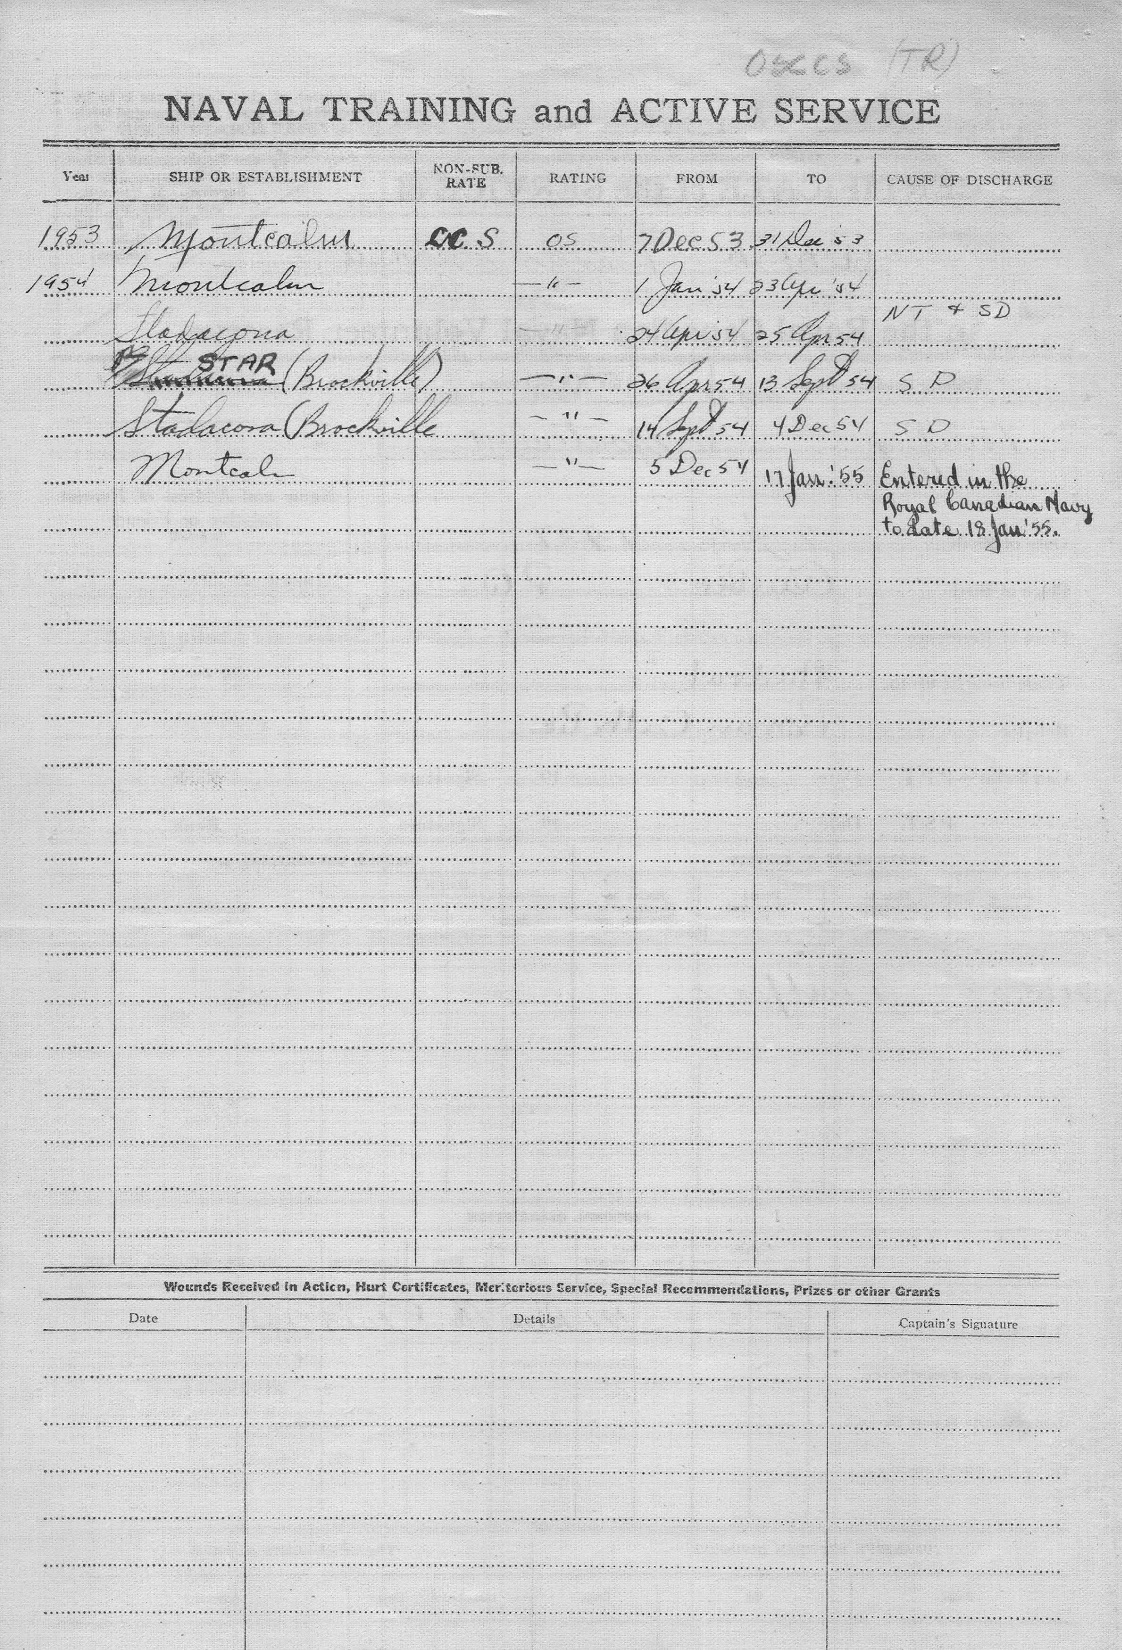 OSCCS (TR)
NAVAL TRAINING and ACTIVE SERVICE
Year SHIP OR ESTABLISHMENT NON-SUB. RATE RATING FROM TO CAUSE OF DISCHARGE
1953 Montcalm CCS OS 7 Dec 53 31 Dec '53
1954 Montcalm —"— 1 Jan '54 23 Apr '54
Stadacona —"— 24 Apr '54 25 Apr 54 NT & SD
STAR (Brockville) —"— 26 Apr 54 13 Sept 54 S D
Stadacona (Brockville —"— 14 Sept 54 4 Dec 54 S D
Montcalm —"— 5 Dec 54 17 Jan. '55 Entered in the
Royal Canadian Navy
to date 18 Jan '55.
Wounds Received in Action, Hurt Certificates, Meritorious Service, Special Recommendations, Prizes or other Grants
Date Details Captain's Signature